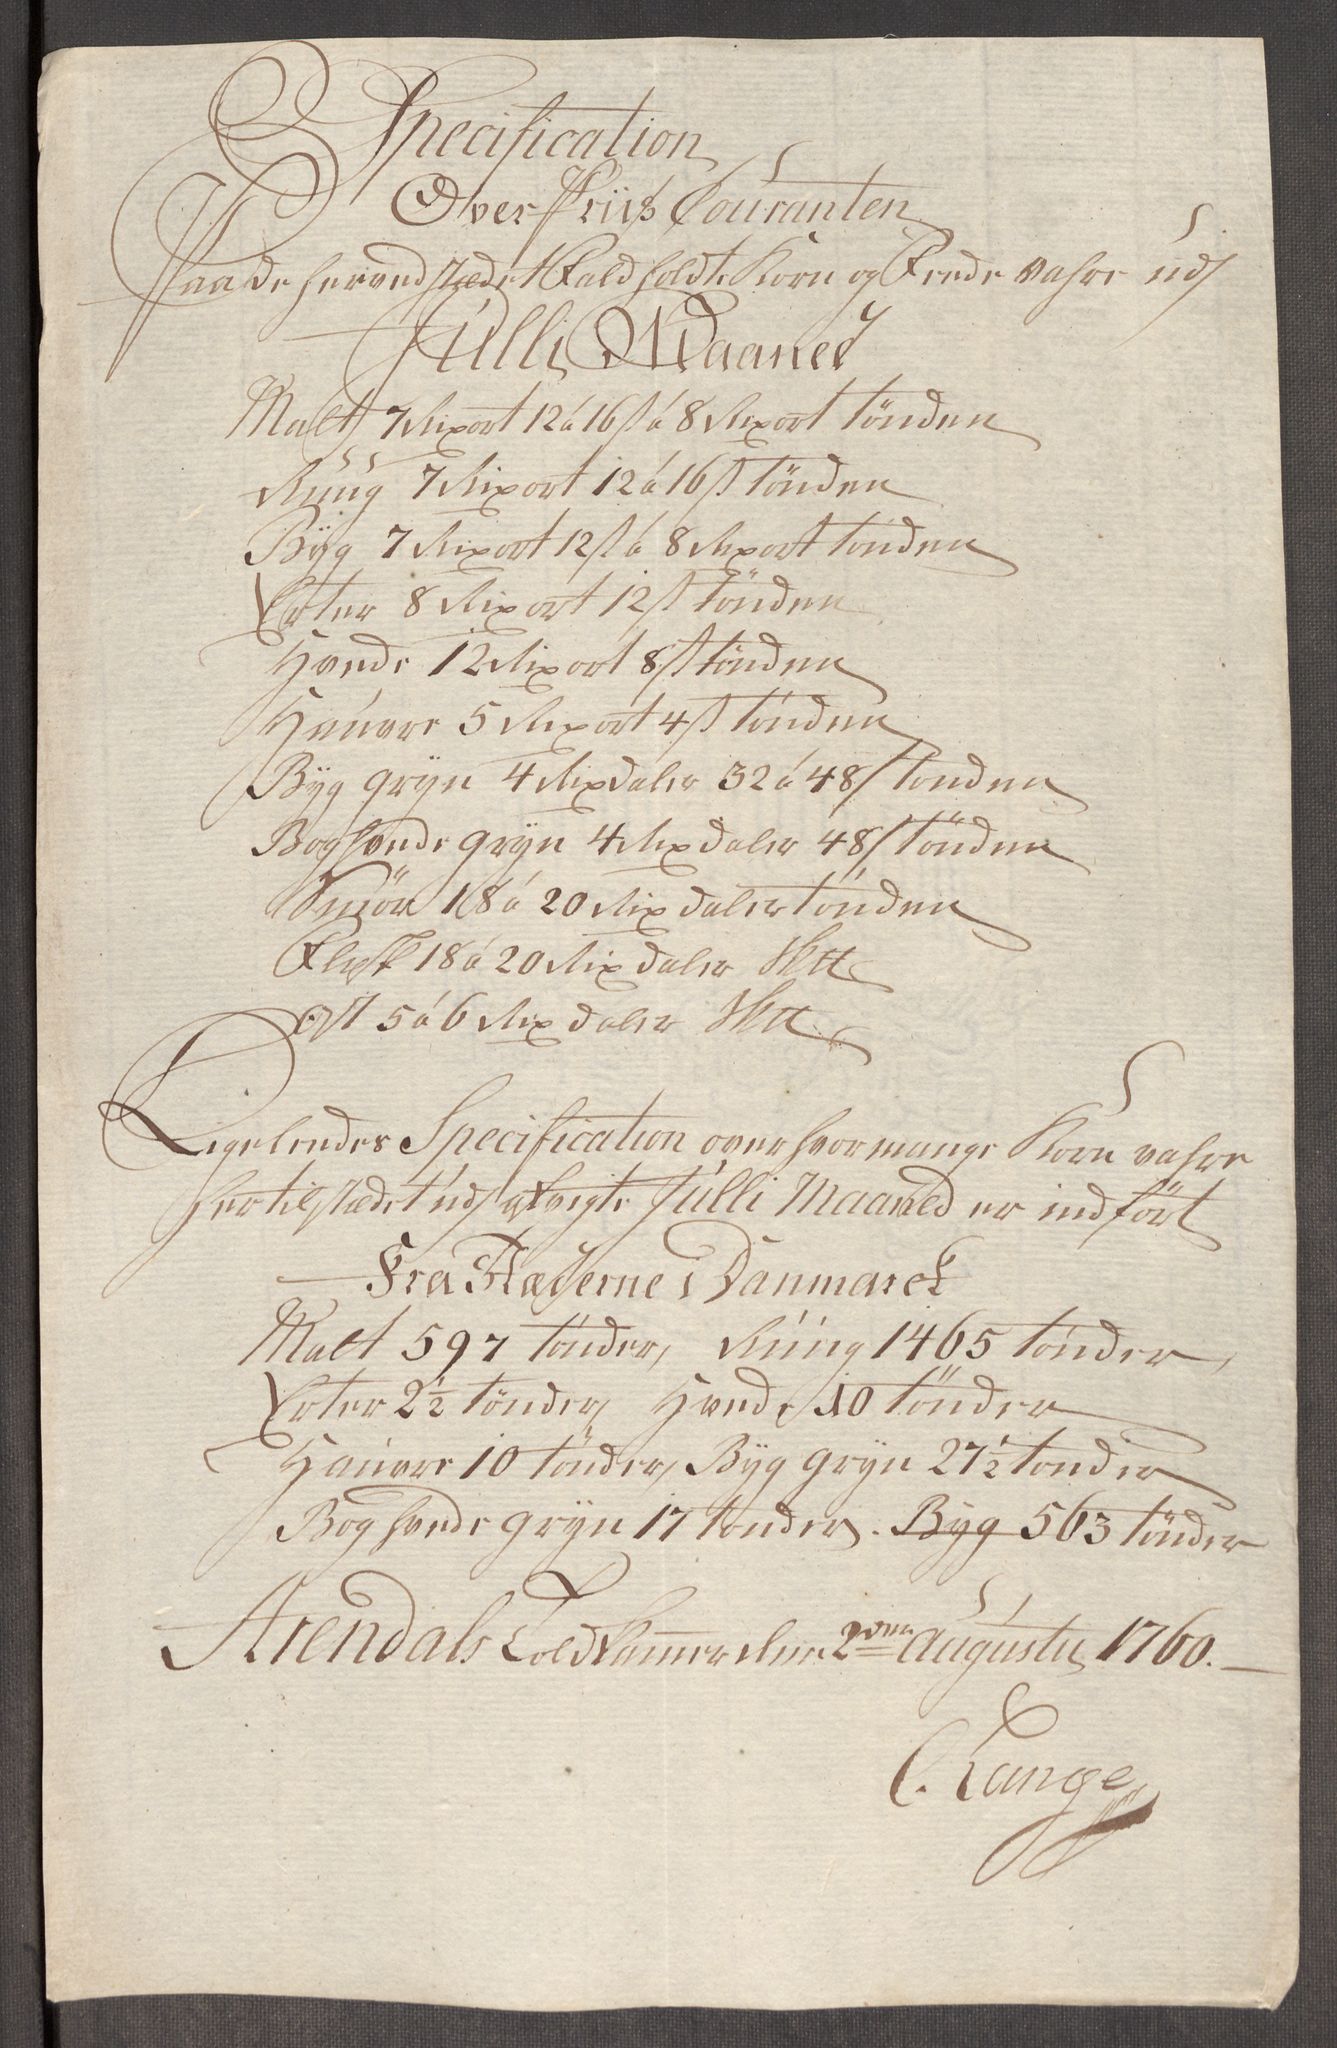 Specification
Over Priis Couranten
Paa de her ved stædet Fald holdte Korn og Fede vahre udj
Julli Maaned
Malt 7 Rixort 12 á 16 s á 8 Rixort tönden
Rúúg 7 Rixort 12 á 16 s tönden
Býg 7 Rixort 12 s á 8 Rixort tönden
Erter 8 Rixort 12 s tönden
Hvede 12 Rixort 8 s tönden
Hauvre 5 Rixort 4 s tönden
Býg grýn 4 Rixdaler 32 á 48 s tönden
Boghvede grýn 4 Rixdaler 48 s tönden
Smör 18 á 20 Rixdaler tönden
Flesk 18 á 20 Rixdaler
Ost 5 á 6 Rixdaler
Ligeleedes Specification over hvor mange Korn vahre
her til stædet udj afvigte Julli Maaned er indfört
Fra Stæderne i Danmarck
Malt 597 tönder, Rúúg 1465 tönder,
Erter 2½ tönder, Hvede 10 tönder
Hauvre 10 tönder, Býg grýn 27½ tönder
Boghvede grýn 17 tönder. Býg 563 tönder
Arendals Told Kammer den 2den Augusti 1760.
C. Lange